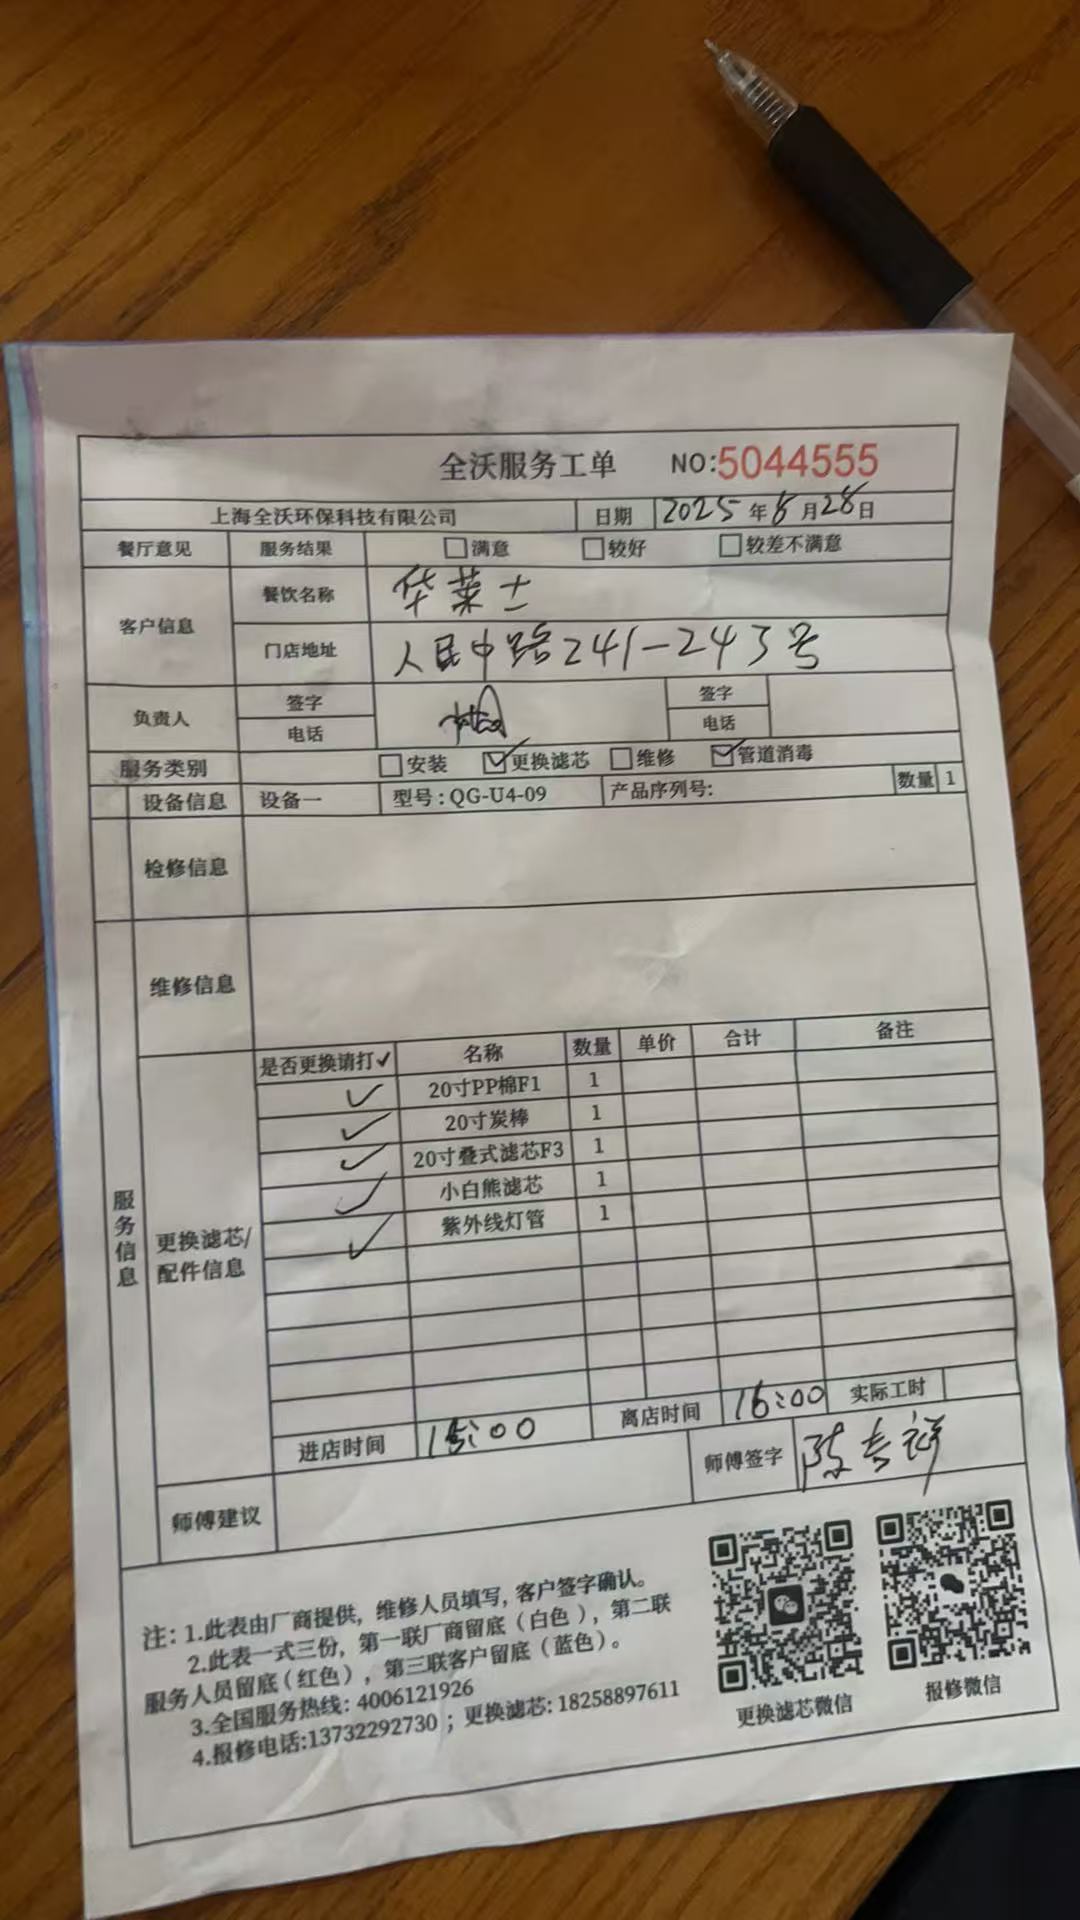 全沃服务工单 NO:5044555
上海全沃环保科技有限公司 日期 2025年8月28日
餐厅意见 服务结果 □满意 □较好 □较差不满意
客户信息 餐饮名称 华莱士
门店地址 人民中路241-243号
负责人 签字 签字
电话 电话
服务类别 □安装 ☑更换滤芯 □维修 ☑管道消毒
设备信息 设备一 型号:QG-U4-09 产品序列号: 数量 1
检修信息
维修信息
服务信息
更换滤芯/配件信息
是否更换请打✓ 名称 数量 单价 合计 备注
✓ 20寸PP棉F1 1
✓ 20寸炭棒 1
✓ 20寸叠式滤芯F3 1
✓ 小白熊滤芯 1
✓ 紫外线灯管 1
进店时间 15:00 离店时间 16:00 实际工时
师傅建议 师傅签字 陈吉祥
注:1.此表由厂商提供,维修人员填写,客户签字确认。
2.此表一式三份,第一联厂商留底(白色),第二联
服务人员留底(红色),第三联客户留底(蓝色)。
3.全国服务热线:4006121926
4.报修电话:13732292730;更换滤芯:18258897611
更换滤芯微信 报修微信